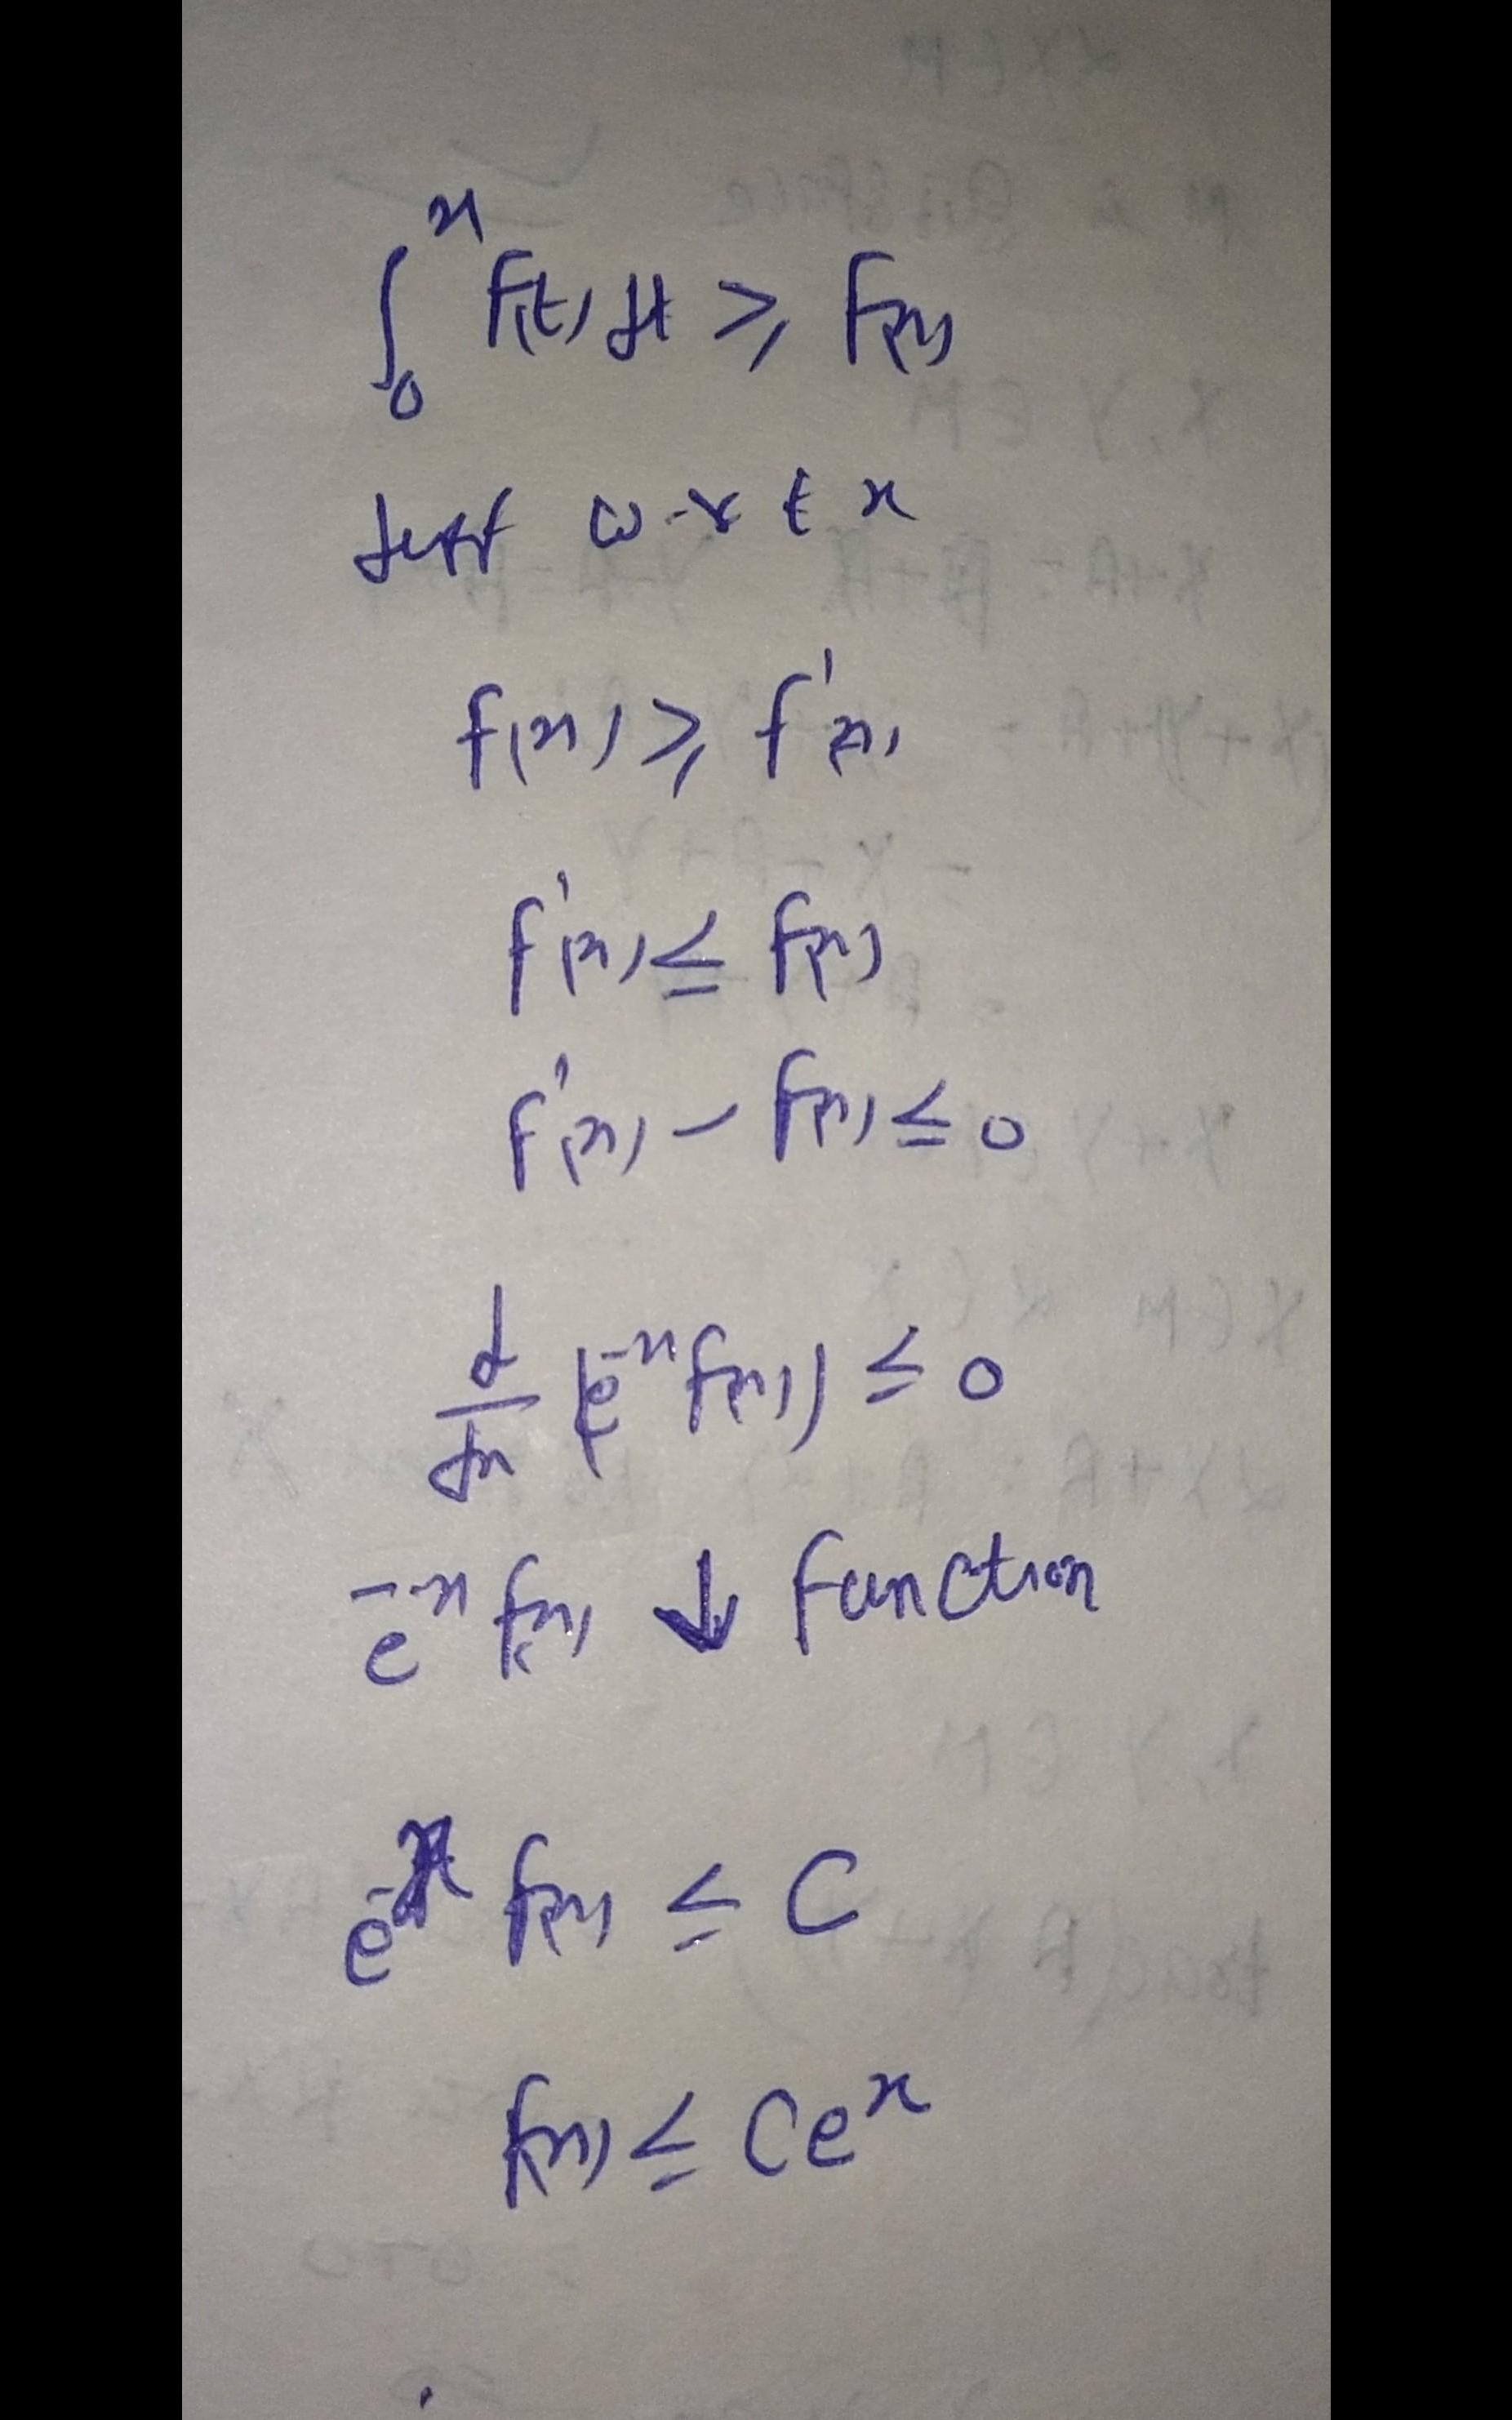 ∫₀ˣ f(t) dt ≥ f(x)
diff w.r t x
f(x) ≥ f'(x)
f'(x) ≤ f(x)
f'(x) - f(x) ≤ 0
d/dx (e⁻ˣ f(x)) ≤ 0
e⁻ˣ f(x) ↓ function
e⁻ˣ f(x) ≤ C
f(x) ≤ Ceˣ